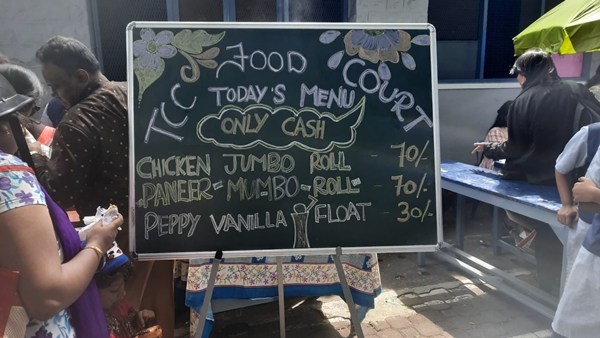 TCC FOOD COURT
TODAY'S MENU
ONLY CASH
CHICKEN JUMBO ROLL - 70/-
PANEER-MUMBO-ROLL - 70/-
PEPPY VANILLA FLOAT - 30/-